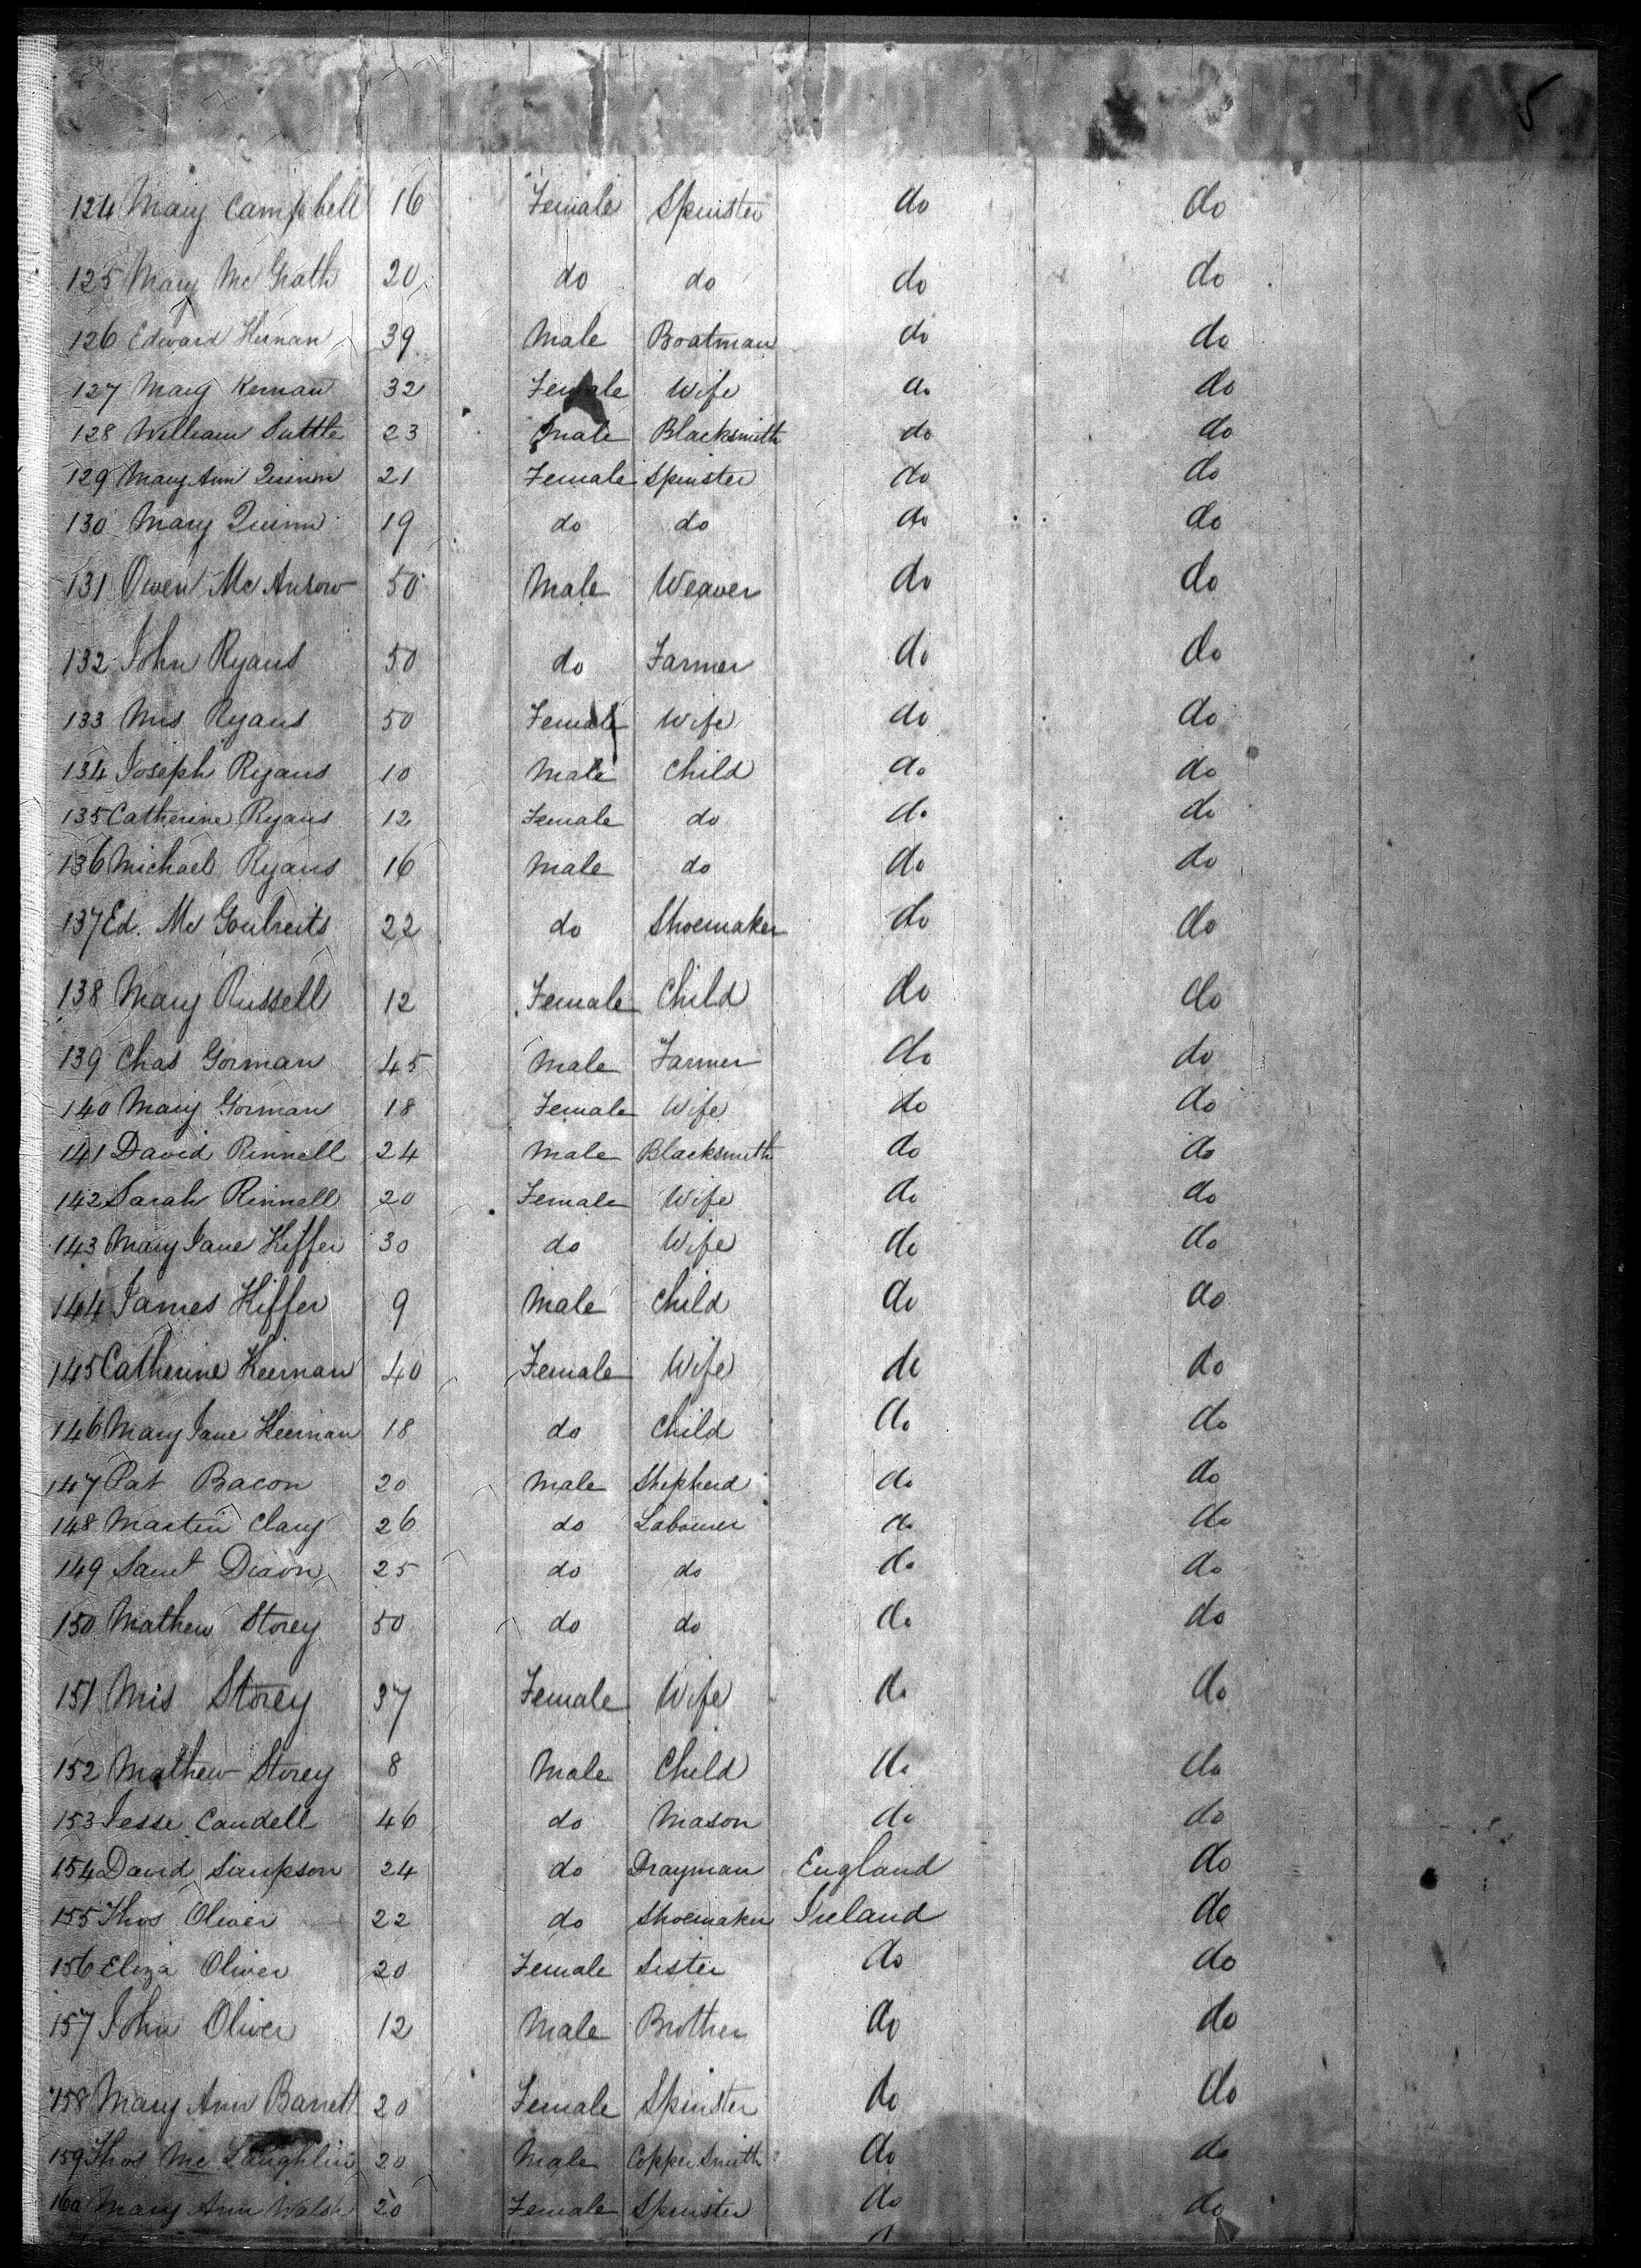 5
124 Mary Campbell 16 Female Spinster do do
125 Mary Mc Grath 20 do do do do
126 Edward Kernan 39 Male Boatman do do
127 Mary Kernan 32 Female Wife do do
128 William Suttle 23 Male Blacksmith do do
129 Mary Ann Quinn 21 Female Spinster do do
130 Mary Quinn 19 do do do do
131 Owen Mc 50 Male Weaver do do
132 John Ryans 50 do Farmer do do
133 Mrs Ryans 50 Female Wife do do
134 Joseph Ryans 10 Male Child do do
135 Catherine Ryans 12 Female do do do
136 Michael Ryans 16 Male do do do
137 Ed. Mc 22 do Shoemaker do do
138 Mary Russell 12 Female Child do do
139 Chas Gorman 45 Male Farmer do do
140 Mary Gorman 18 Female Wife do do
141 David Rinnell 24 Male Blacksmith do do
142 Sarah Rinnell 20 Female Wife do do
143 Mary Jane Kiffer 30 do Wife do do
144 James Kiffer 9 Male Child do do
145 Catherine Keernan 40 Female Wife do do
146 Mary Jane Keernan 18 do Child do do
147 Pat Bacon 20 Male Shepherd do do
148 Martin Clary 26 do Labourer do do
149 Saml Dixon 25 do do do do
150 Mathew Storey 50 do do do do
151 Mrs Storey 37 Female Wife do do
152 Mathew Storey 8 Male Child do do
153 Jesse Caudell 46 do Mason do do
154 David Simpson 24 do Drayman England do
155 Thos Oliver 22 do Shoemaker Ireland do
156 Eliza Oliver 20 Female Sister do do
157 John Oliver 12 Male Brother do do
158 Mary Ann Barrett 20 Female Spinster do do
159 Thos Mc Laughlin 20 Male Copper Smith do do
160 Mary Ann Walsh 20 Female Spinster do do